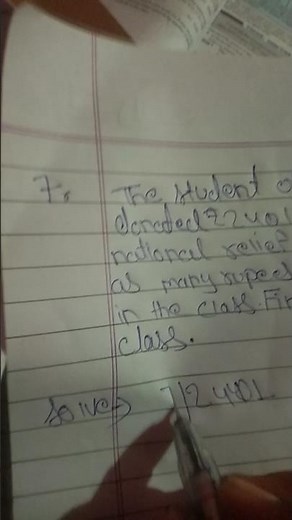 7. The student o
donated ₹2401
national relief
as many rupees
in the class. Fin
class.
Solve→ 7|2401